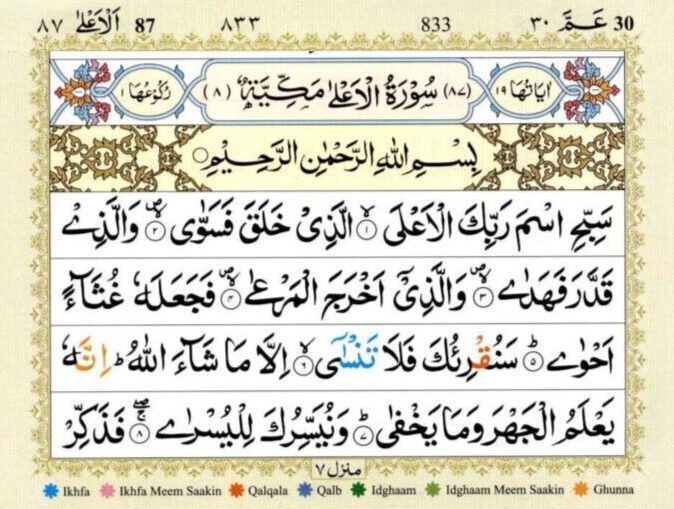 ٨٧ اَلْاَعْلٰى 87 ٨٣٣ 833 ٣٠ عَمَّ 30
اٰيَاتُهَا ١٩ (٨٧) سُوْرَةُ الْاَعْلٰى مَكِّيَّةٌ (٨) رُكُوْعُهَا ١
بِسْمِ اللّٰهِ الرَّحْمٰنِ الرَّحِيْمِ
سَبِّحِ اسْمَ رَبِّكَ الْاَعْلَى ۙ﴿١﴾ الَّذِيْ خَلَقَ فَسَوّٰى ۪ۙ﴿٢﴾ وَالَّذِيْ
قَدَّرَ فَهَدٰى ۪ۙ﴿٣﴾ وَالَّذِيْۤ اَخْرَجَ الْمَرْعٰى ۪ۙ﴿٤﴾ فَجَعَلَهٗ غُثَآءً
اَحْوٰى ؕ﴿٥﴾ سَنُقْرِئُكَ فَلَا تَنْسٰۤى ۙ﴿٦﴾ اِلَّا مَا شَآءَ اللّٰهُ ؕ اِنَّهٗ
يَعْلَمُ الْجَهْرَ وَمَا يَخْفٰى ؕ﴿٧﴾ وَنُيَسِّرُكَ لِلْيُسْرٰى ۚۖ﴿٨﴾ فَذَكِّرْ
منزل ٧
Ikhfa Ikhfa Meem Saakin Qalqala Qalb Idghaam Idghaam Meem Saakin Ghunna